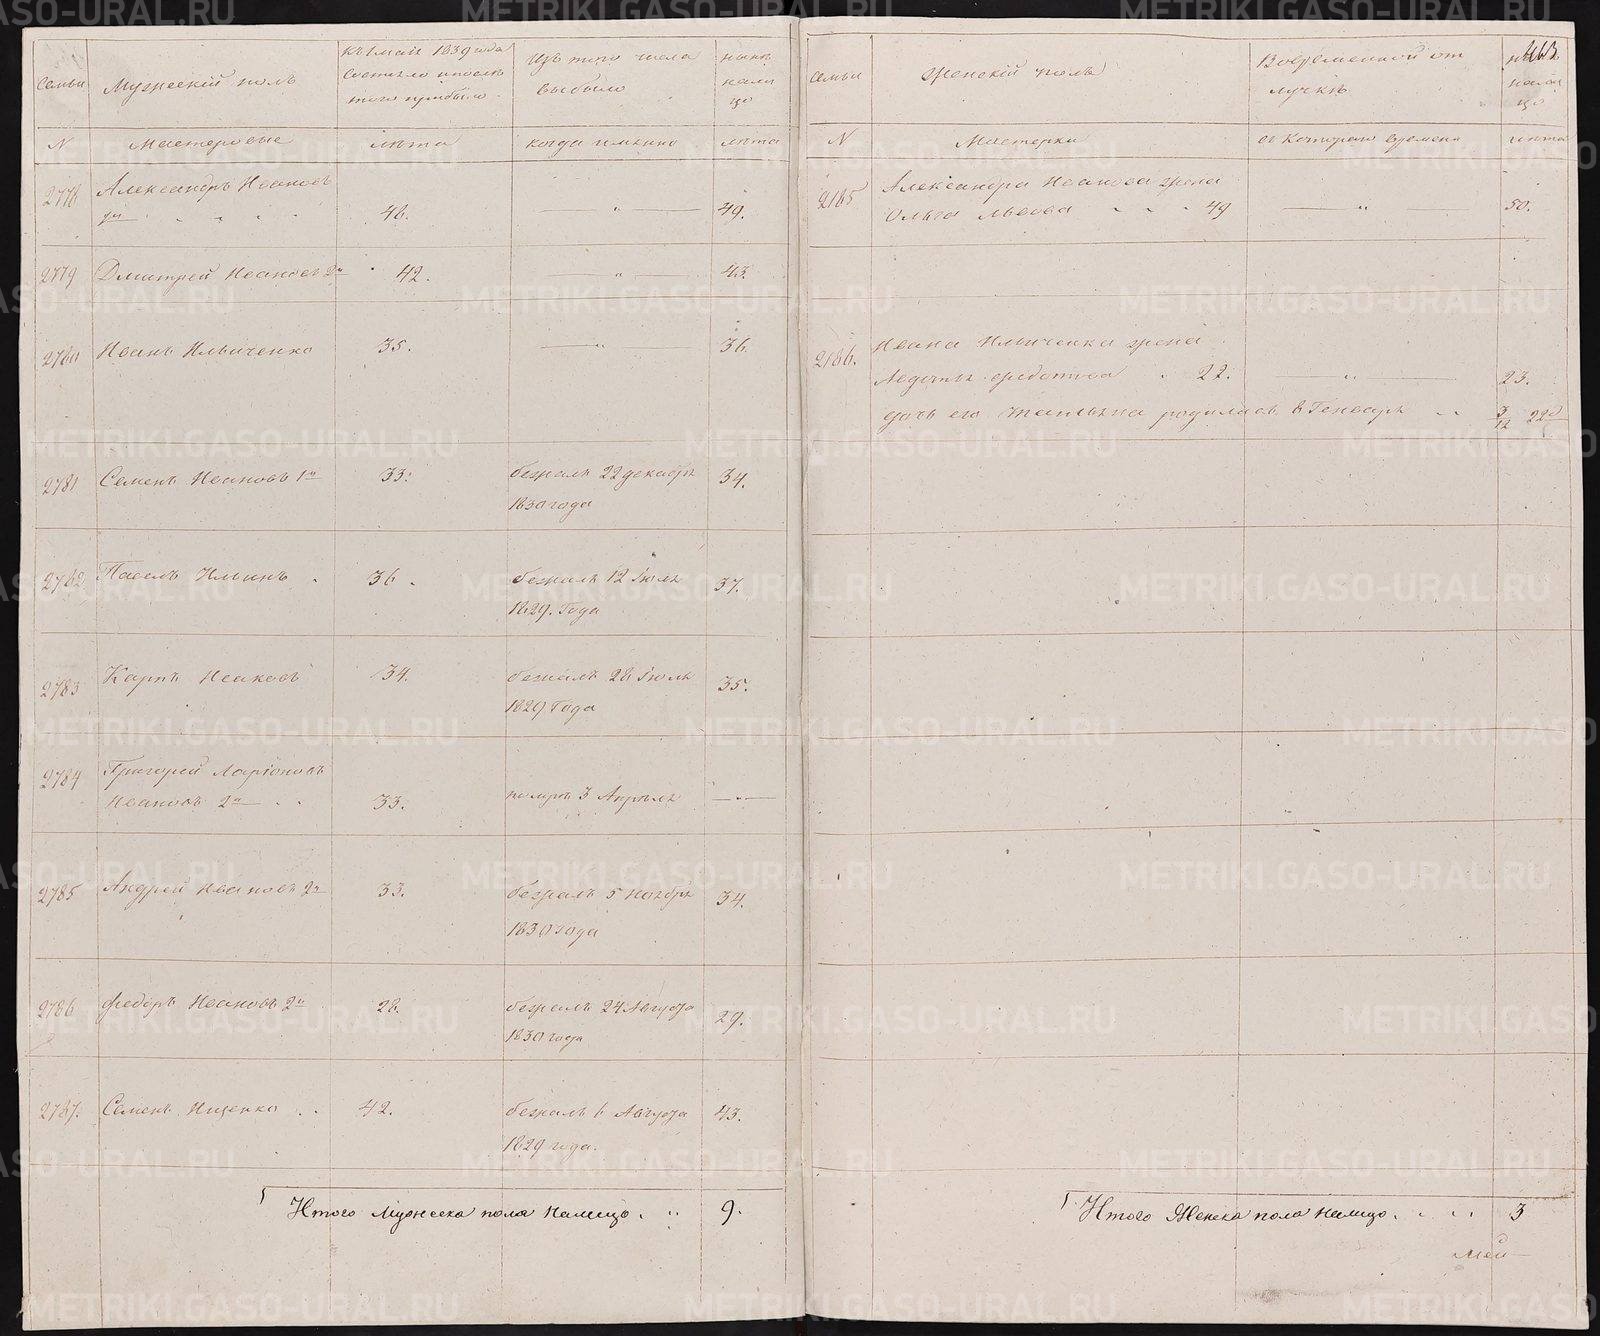 Семьи
Мужескiй полъ
Къ 1 маiя 1830 года
состояло и послѣ
того прибыло
Изъ того числа
выбыло
нынѣ
на ли
цо
N
Мастеровые
лѣта
когда именно
лѣта
2778 Александръ Ивановъ
48. — „ — 49.
2779 Дмитрей Ивановъ 2й 42. — „ — 43.
2780 Иванъ Ильиченко 35. — „ — 36.
2781 Семенъ Ивановъ 1й 33. бежалъ 22 декабря 34.
1830 года
2782 Павелъ Ильинъ 36. бежалъ 12 Iюля 37.
1829. Года
2783 Карпъ Ивановъ 34. бежалъ 28 Iюля 35.
1829 Года
2784 Григорей Ларiоновъ
Ивановъ 2й 33. померъ 3 Апрѣля — „ —
2785 Андрей Ивановъ 2й 33. бежалъ 5 Ноября 34.
1830 года
2786 Федоръ Ивановъ 2й 28. бежалъ 24 Августа 29.
1830 года
2787. Семенъ Ищенко 42. бежалъ 6 Августа 43.
1829 года.
Итого Мужеска пола налицо 9.
463
Семьи
Женскiй полъ
Во временной от
лучкѣ
на ли
цо
N
Мастерки
съ котораго времени
лѣта
2185 Александра Иванова жена
Ольга Львова 49 — „ — 50.
2186. Ивана Ильиченки жена
Федотова 22. — „ — 23.
дочь его Татьяна родилась в Генваре 3/12
Итого Женска пола налицо 3
METRIKI.GASO-URAL.RU